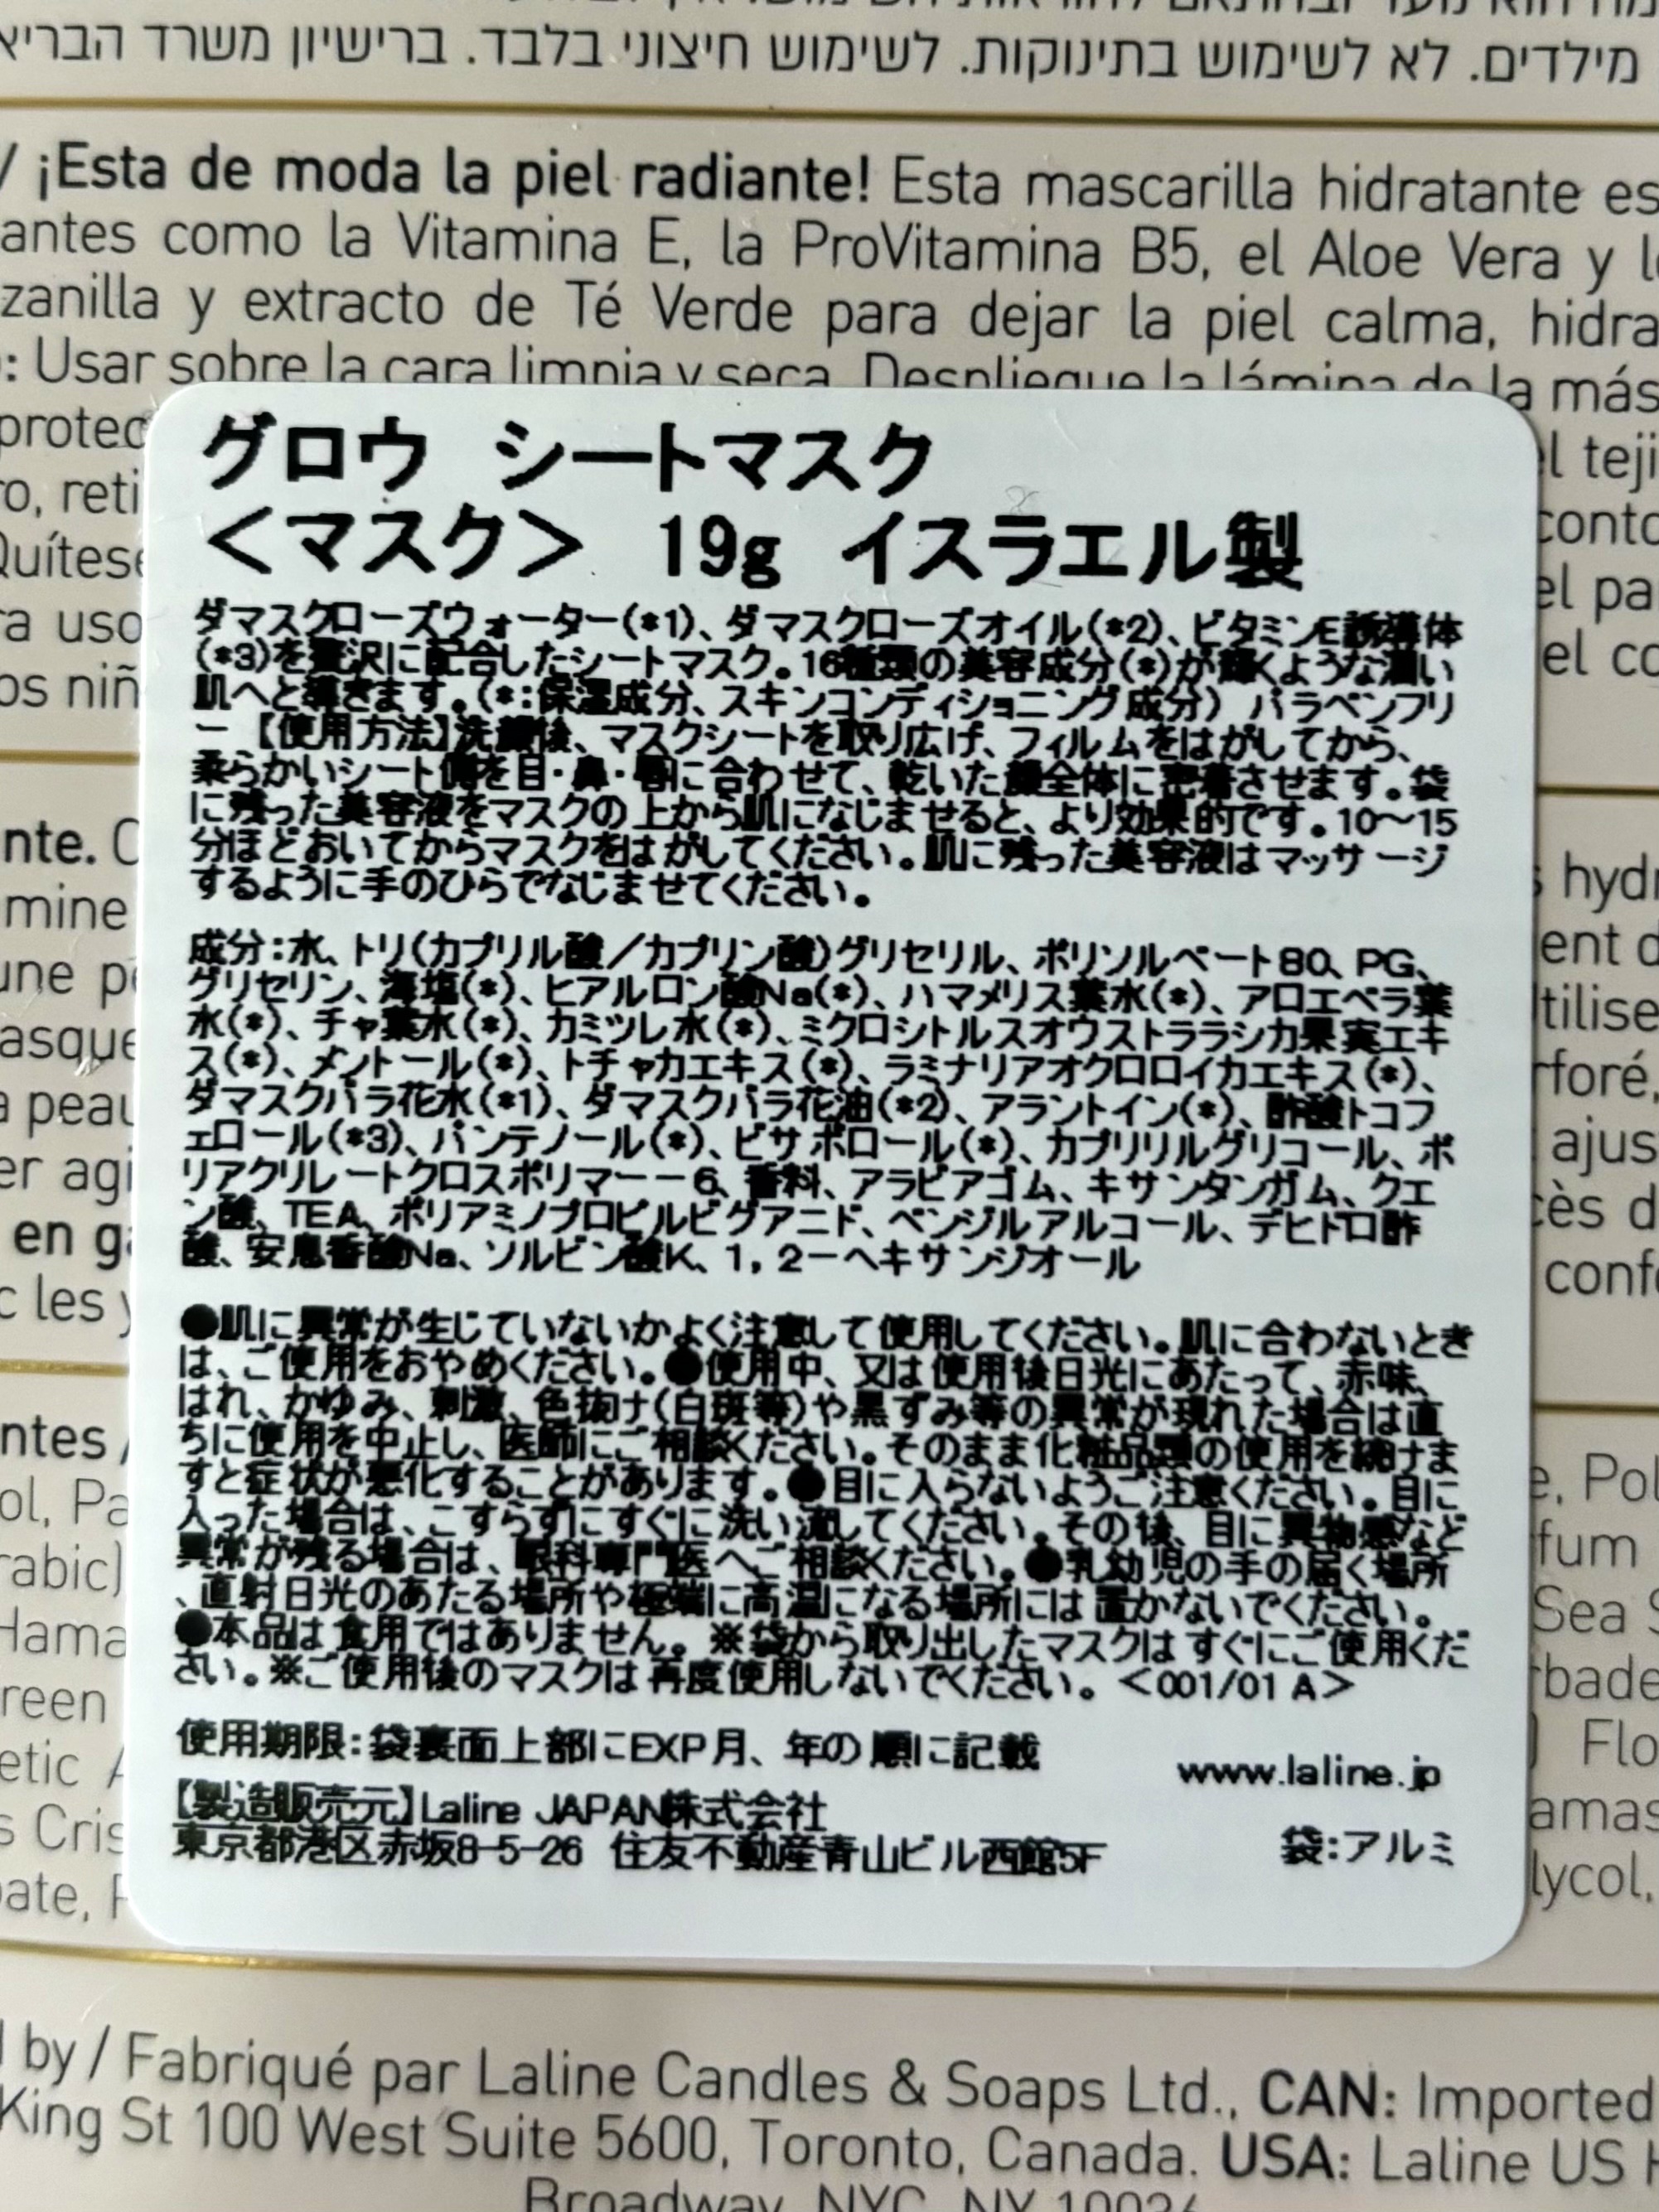 מילדים. לא לשימוש בתינוקות. לשימוש חיצוני בלבד. ברישיון משרד הבריא
/ ¡Esta de moda la piel radiante! Esta mascarilla hidratante es
antes como la Vitamina E, la ProVitamina B5, el Aloe Vera y l
zanilla y extracto de Té Verde para dejar la piel calma, hidra
: Usar sobre la cara limpia y seca. Despliegue la lámina de la más
protec
l teji
o, reti
conto
Quítese
el pa
ra uso
el co
os niñ
グロウ シートマスク
<マスク> 19g イスラエル製
ダマスクローズウォーター(*1)、ダマスクローズオイル(*2)、ビタミンE誘導体
(*3)を贅沢に配合したシートマスク。16種類の美容成分(*)が輝くような潤い
肌へと導きます。(*:保湿成分、スキンコンディショニング成分) パラベンフリ
ー 【使用方法】洗顔後、マスクシートを取り広げ、フィルムをはがしてから、
柔らかいシート側を目・鼻・唇に合わせて、乾いた顔全体に密着させます。袋
に残った美容液をマスクの上から肌になじませると、より効果的です。10～15
分ほどおいてからマスクをはがしてください。肌に残った美容液はマッサージ
するように手のひらでなじませてください。
成分:水、トリ(カプリル酸/カプリン酸)グリセリル、ポリソルベート80、PG、
グリセリン、海塩(*)、ヒアルロン酸Na(*)、ハマメリス葉水(*)、アロエベラ葉
水(*)、チャ葉水(*)、カミツレ水(*)、ミクロシトルスオウストララシカ果実エキ
ス(*)、メントール(*)、トチャカエキス(*)、ラミナリアオクロロイカエキス(*)、
ダマスクバラ花水(*1)、ダマスクバラ花油(*2)、アラントイン(*)、酢酸トコフ
ェロール(*3)、パンテノール(*)、ビサボロール(*)、カプリリルグリコール、ポ
リアクリレートクロスポリマー－6、香料、アラビアゴム、キサンタンガム、クエ
ン酸、TEA、ポリアミノプロピルビグアニド、ベンジルアルコール、デヒドロ酢
酸、安息香酸Na、ソルビン酸K、1，2－ヘキサンジオール
●肌に異常が生じていないかよく注意して使用してください。肌に合わないとき
は、ご使用をおやめください。●使用中、又は使用後日光にあたって、赤味、
はれ、かゆみ、刺激、色抜け(白斑等)や黒ずみ等の異常が現れた場合は直
ちに使用を中止し、医師にご相談ください。そのまま化粧品類の使用を続けま
すと症状が悪化することがあります。●目に入らないようご注意ください。目に
入った場合は、こすらずにすぐに洗い流してください。その後、目に異物感など
異常が残る場合は、眼科専門医へご相談ください。●乳幼児の手の届く場所
、直射日光のあたる場所や極端に高温になる場所には置かないでください。
●本品は食用ではありません。※袋から取り出したマスクはすぐにご使用くだ
さい。※ご使用後のマスクは再度使用しないでください。<001/01 A>
使用期限:袋裏面上部にEXP月、年の順に記載
www.laline.jp
【製造販売元】Laline JAPAN株式会社
東京都港区赤坂8-5-26 住友不動産青山ビル西館5F
袋:アルミ
nte. C
hydr
mine
ent d
une p
tilise
asque
rforé,
a peau
ajus
er agi
cès d
en g
confo
c les y
ntes /
e, Pol
ol, Pa
fum
rabic)
Sea S
Hama
bade
reen
Flo
etic A
amas
s Cris
lycol,
ate, P
by / Fabriqué par Laline Candles & Soaps Ltd., CAN: Imported
King St 100 West Suite 5600, Toronto, Canada. USA: Laline US H
Broadway, NYC, NY 10036